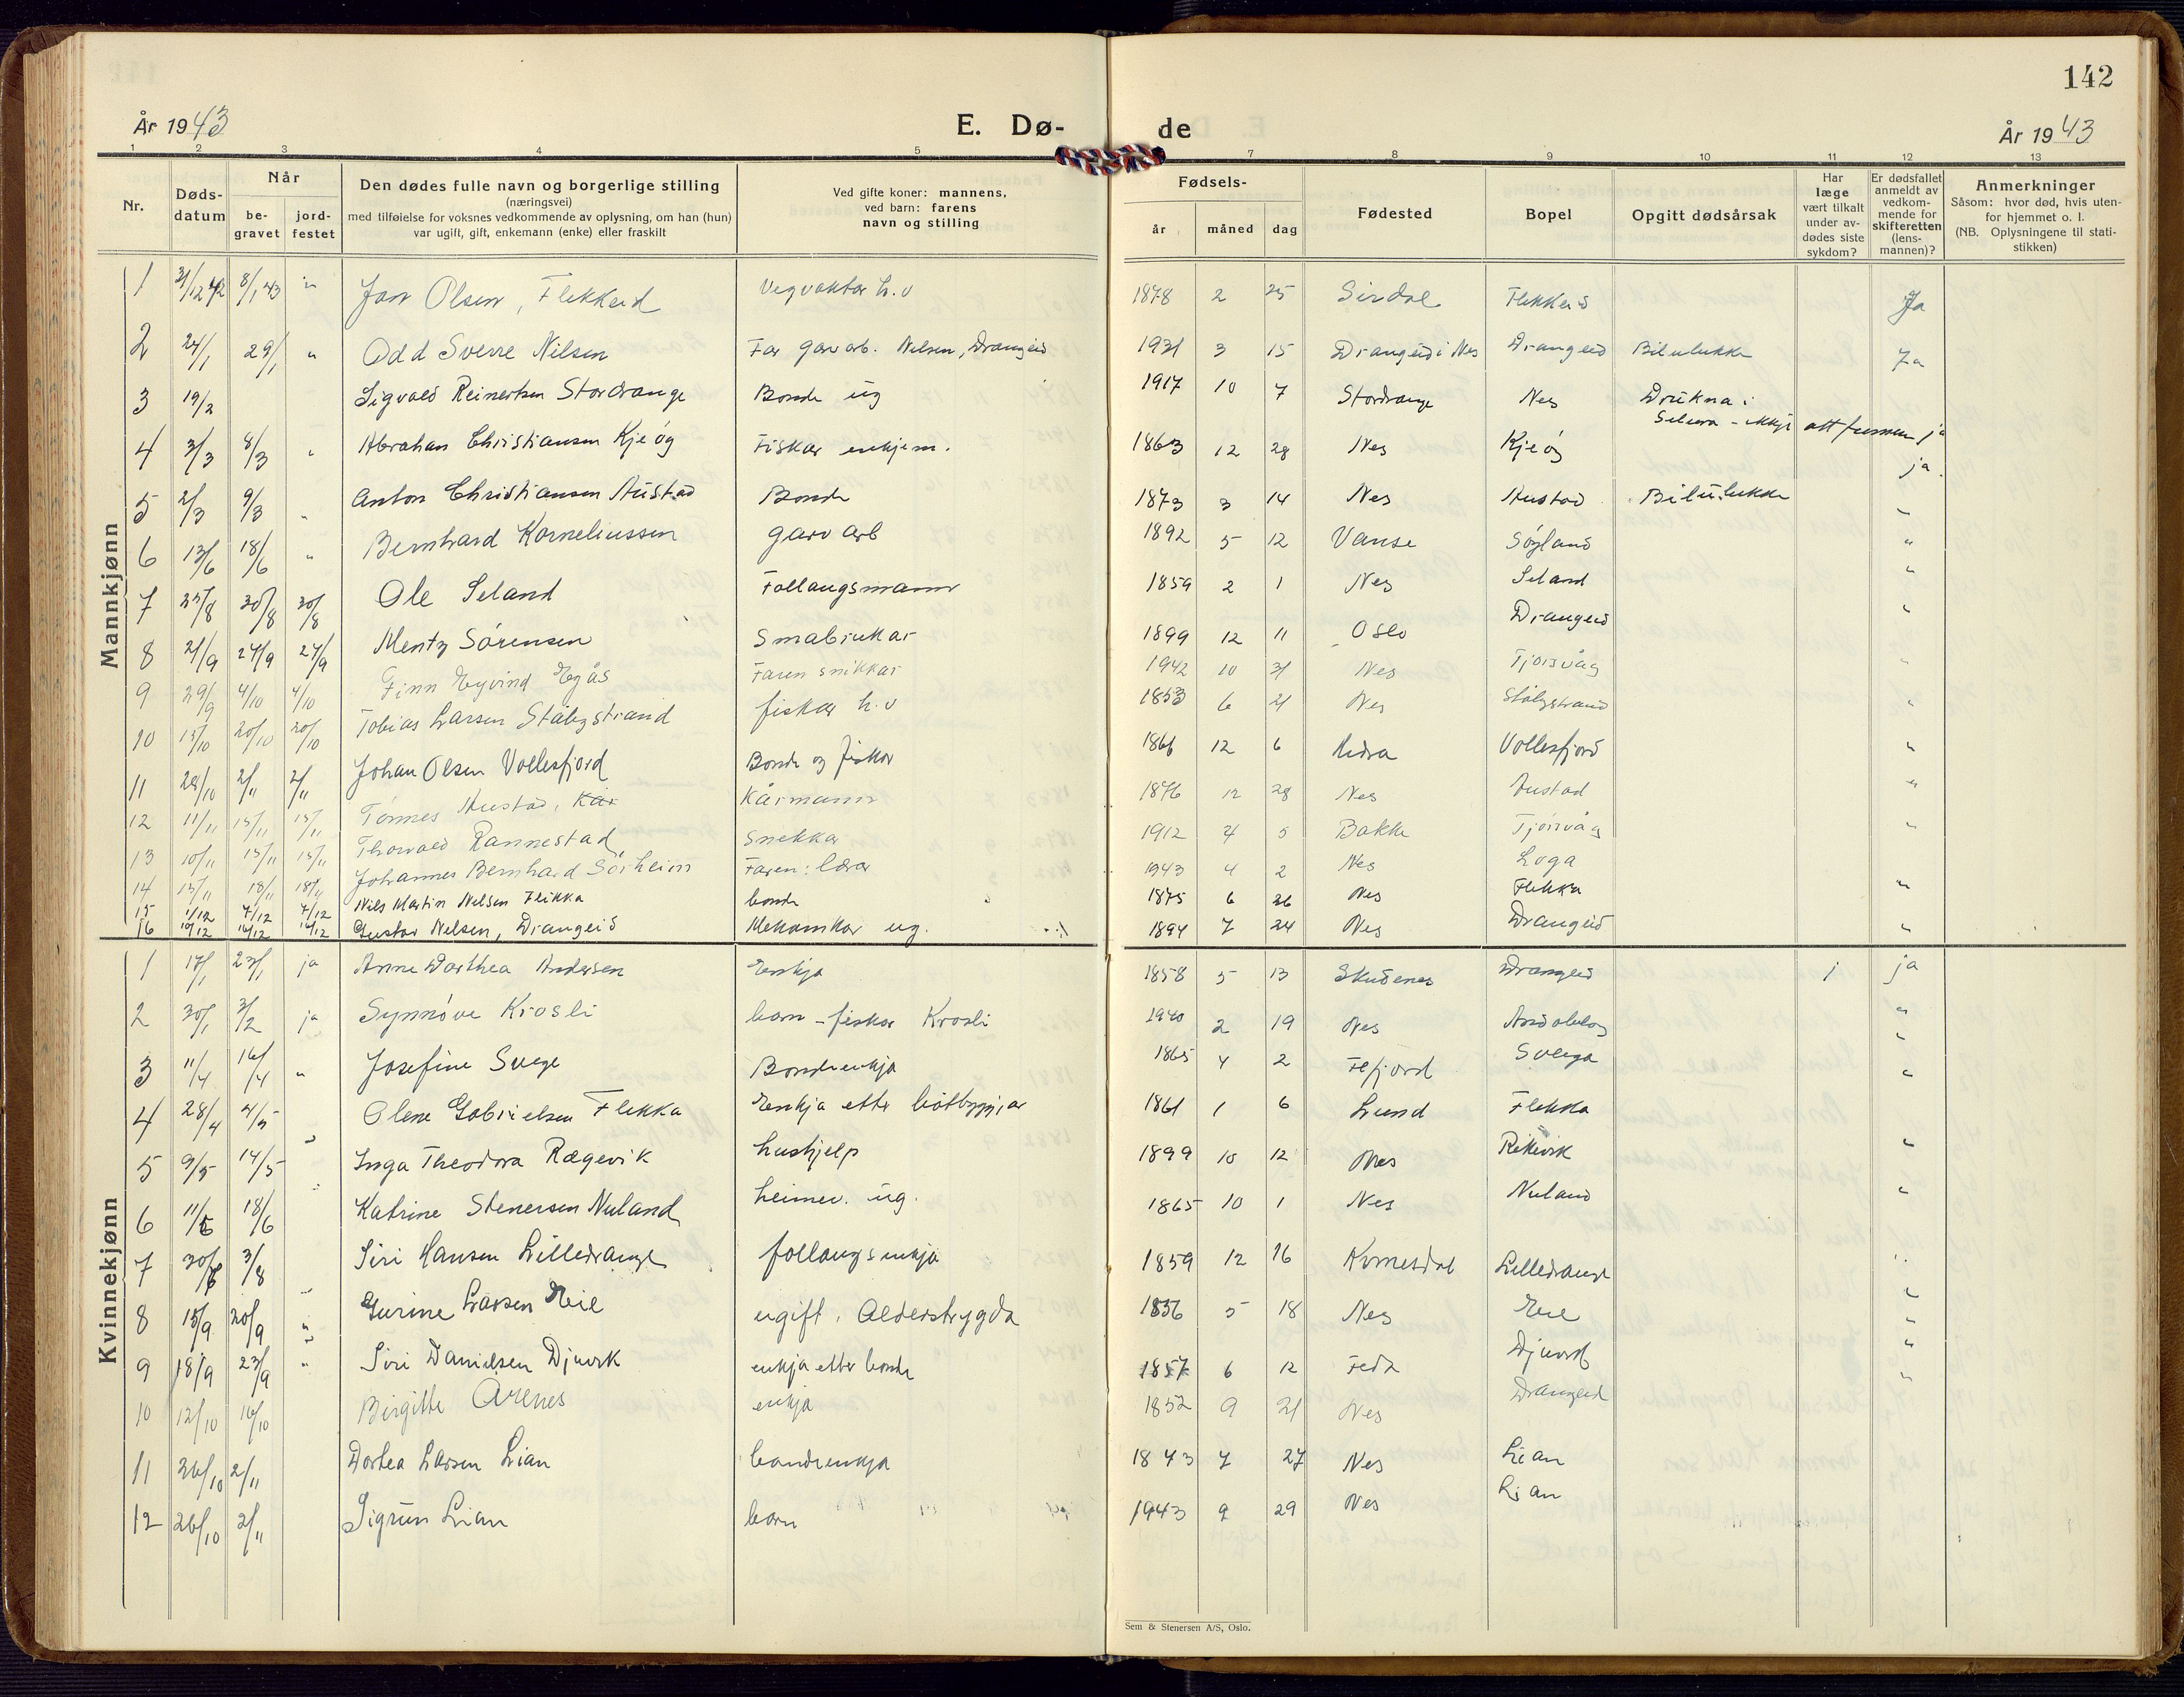 142
År 1943 E. Dø- de År 1943
1 2 3 4 5 7 8 9 10 11 12 13
Nr.
Døds-
datum
Når
be-
gravet
jord-
festet
Den dødes fulle navn og borgerlige stilling
(næringsvei)
med tilføielse for voksnes vedkommende av oplysning, om han (hun)
var ugift, gift, enkemann (enke) eller fraskilt
Ved gifte koner: mannens,
ved barn: farens
navn og stilling
Fødsels-
år måned dag
Fødested
Bopel
Opgitt dødsårsak
Har
læge
vært tilkalt
under av-
dødes siste
sykdom?
Er dødsfallet
anmeldt av
vedkom-
mende for
skifteretten
(lens-
mannen)?
Anmerkninger
Såsom: hvor død, hvis uten-
for hjemmet o. l.
(NB. Oplysningene til stati-
stikken)
Mannkjønn
1 31/12 42 8/1 43 " Jon Olsen, Flekkeid Vegvaktar h.v 1878 2 25 Sirdal Flekkeid Ja
2 24/1 29/1 " Odd Sverre Nilsen Far garv arb. Nilsen, Drangeid 1931 3 15 Drangeid i Nes Drangeid Bilulukke Ja
3 19/2 Sigvald Reinertsen Stordrange Bonde ug 1917 10 7 Stordrange Nes Drukna i
Selura - ikkje att funnen ja
4 3/3 8/3 " Abrahan Christiansen Kjeøy Fiskar enkjem. 1863 12 28 Nes Kjeøy ja.
5 2/3 9/3 " Anton Christiansen Austad Bonde 1873 3 14 Nes Austad Bilulukke "
6 13/6 18/6 " Bernhard Korneliussen garv arb 1892 5 12 Vanse Søyland "
7 25/8 30/8 30/8 Ole Seland Follaugsmann 1859 2 1 Nes Seland "
8 21/9 24/9 27/9 Mentz Sørensen Smabrukar 1899 12 11 Oslo Drangeid "
9 29/9 4/10 4/10 Finn Eyvind Egås Faren snikkar 1942 10 31 Nes Tjorsvåg "
10 15/10 20/10 20/10 Tobias Larsen Stålegstrand fiskar h.v 1853 6 21 Nes Stålegstrand "
11 28/10 2/11 2/11 Johan Olsen Vollesfjord Bonde og fiskar 1866 12 6 Hidra Vollesfjord "
12 11/11 15/11 15/11 Tønnes Austad, kår Kårmann 1876 12 28 Nes Austad "
13 10/11 15/11 15/11 Thorvald Rannestad, Snekkar 1912 4 5 Bakke Tjorsvåg "
14 15/11 18/11 18/11 Johannes Bernhard Sørheim Faren: lærar 1943 4 2 Nes Loga
15 1/12 7/12 7/12 Nils Martin Nilsen Flikka bonde 1875 6 26 Nes Flekka "
16 10/12 16/12 16/12 Gustav Nelsen, Drangeid Mekanikar ug. 1894 7 24 Nes Drangeid "
Kvinnekjønn
1 17/1 23/1 ja Anne Dorthea Andersen Enkja 1858 5 13 Skudenes Drangeid j ja
2 30/1 3/2 ja Synnøve Krosli barn - fiskar Krosli 1940 2 19 Nes "
3 11/4 16/4 " Josefine Svege Bondeenkja 1865 4 2 Fefjord Sveiga "
4 28/4 4/5 " Olene Gabrielsen Flikka Enkja etter båtbyggjar 1861 1 6 Lund Flekka "
5 9/5 14/5 " Inga Theodora Rægevik hushjelp 1899 10 12 Nes Rekevik "
6 11/6 18/6 Katrine Stenersen Nuland heimev. ug. 1865 10 1 Nes Nuland "
7 30/7 3/8 " Siri Hansen Lilledrange follaugsenkja 1859 12 16 Kvinesdal Lilledrange "
8 15/9 20/9 " Gurine Larsen Eie ugift, Alderstrygda 1836 5 18 Nes Eie "
9 18/9 23/9 " Siri Danielsen Djuvik enkja etter bonde 1857 6 12 Feda Djuvik "
10 12/10 16/10 Birgitte Årenes enkja 1852 9 21 Nes Drangeid "
11 26/10 2/11 Dorthea Larsen Lian bondeenkja 1843 7 27 Nes Lian
12 26/10 2/11 Sigrun Lian barn 1943 9 29 Nes Lian
Sem & Stenersen A/S, Oslo.